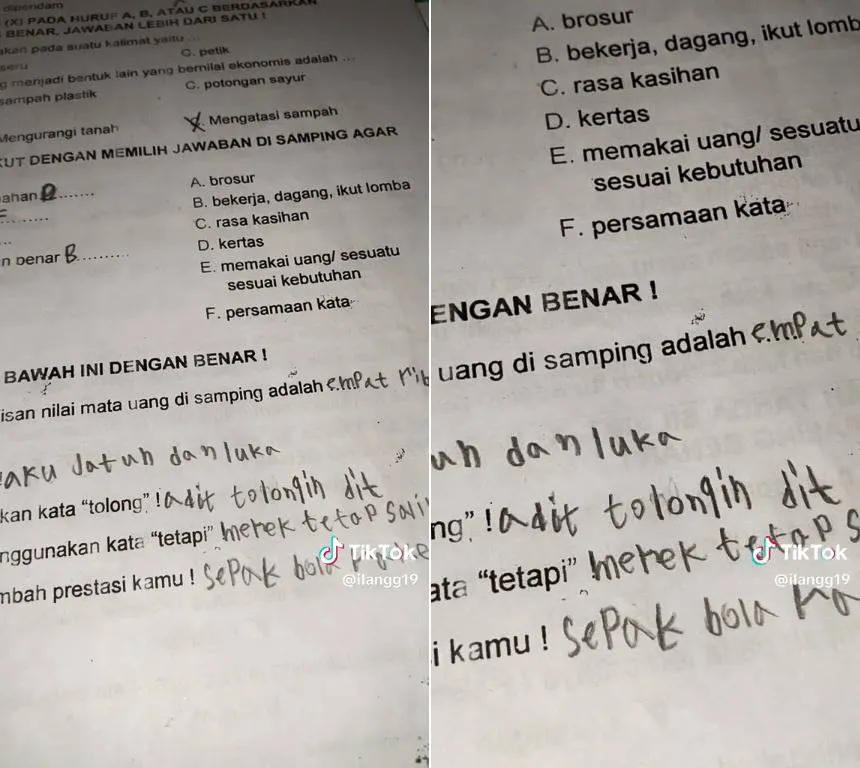 dipendam
(X) PADA HURUF A, B, ATAU C BERDASARKAN
BENAR, JAWABAN LEBIH DARI SATU !
akan pada suatu kalimat yaitu ...
seru
C. petik
g menjadi bentuk lain yang bernilai ekonomis adalah ...
sampah plastik
C. potongan sayur
Mengurangi tanah
Mengatasi sampah
KUT DENGAN MEMILIH JAWABAN DI SAMPING AGAR
ahan ........
A. brosur
........
B. bekerja, dagang, ikut lomba
..
C. rasa kasihan
n benar B..........
D. kertas
E. memakai uang/ sesuatu
sesuai kebutuhan
F. persamaan kata
BAWAH INI DENGAN BENAR !
isan nilai mata uang di samping adalah empat rib
aku Jatuh dan luka
kan kata “tolong” ! adit tolongin dit
nggunakan kata “tetapi” merek tetap
mbah prestasi kamu ! SePak bola
TikTok
@ilangg19
A. brosur
B. bekerja, dagang, ikut lomb
C. rasa kasihan
D. kertas
E. memakai uang/ sesuatu
sesuai kebutuhan
F. persamaan kata
ENGAN BENAR !
uang di samping adalah emPat
uh dan luka
ng” ! adit tolongin dit
ata “tetapi” merek tetap s
i kamu ! SePak bola
TikTok
@ilangg19